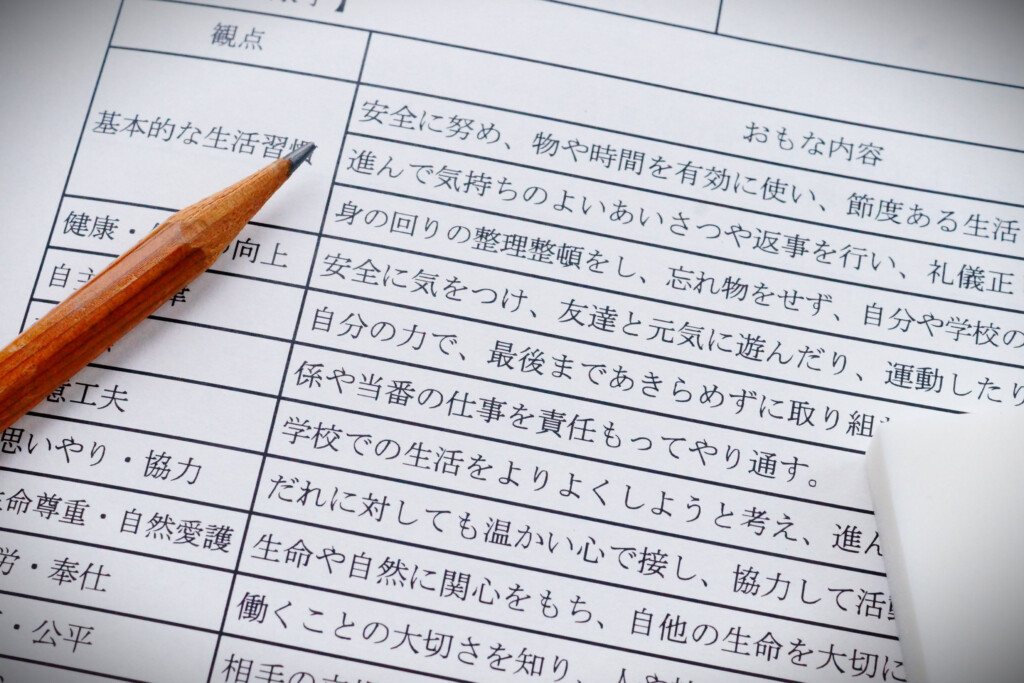 観点
おもな内容
基本的な生活習慣
安全に努め、物や時間を有効に使い、節度ある生活
進んで気持ちのよいあいさつや返事を行い、礼儀正
身の回りの整理整頓をし、忘れ物をせず、自分や学校の
健康・の向上
安全に気をつけ、友達と元気に遊んだり、運動したり
自主
自分の力で、最後まであきらめずに取り組
係や当番の仕事を責任もってやり通す。
意工夫
学校での生活をよりよくしようと考え、進ん
思いやり・協力
だれに対しても温かい心で接し、協力して活動
生命尊重・自然愛護
生命や自然に関心をもち、自他の生命を大切に
労・奉仕
働くことの大切さを知り、人や
・公平
相手の